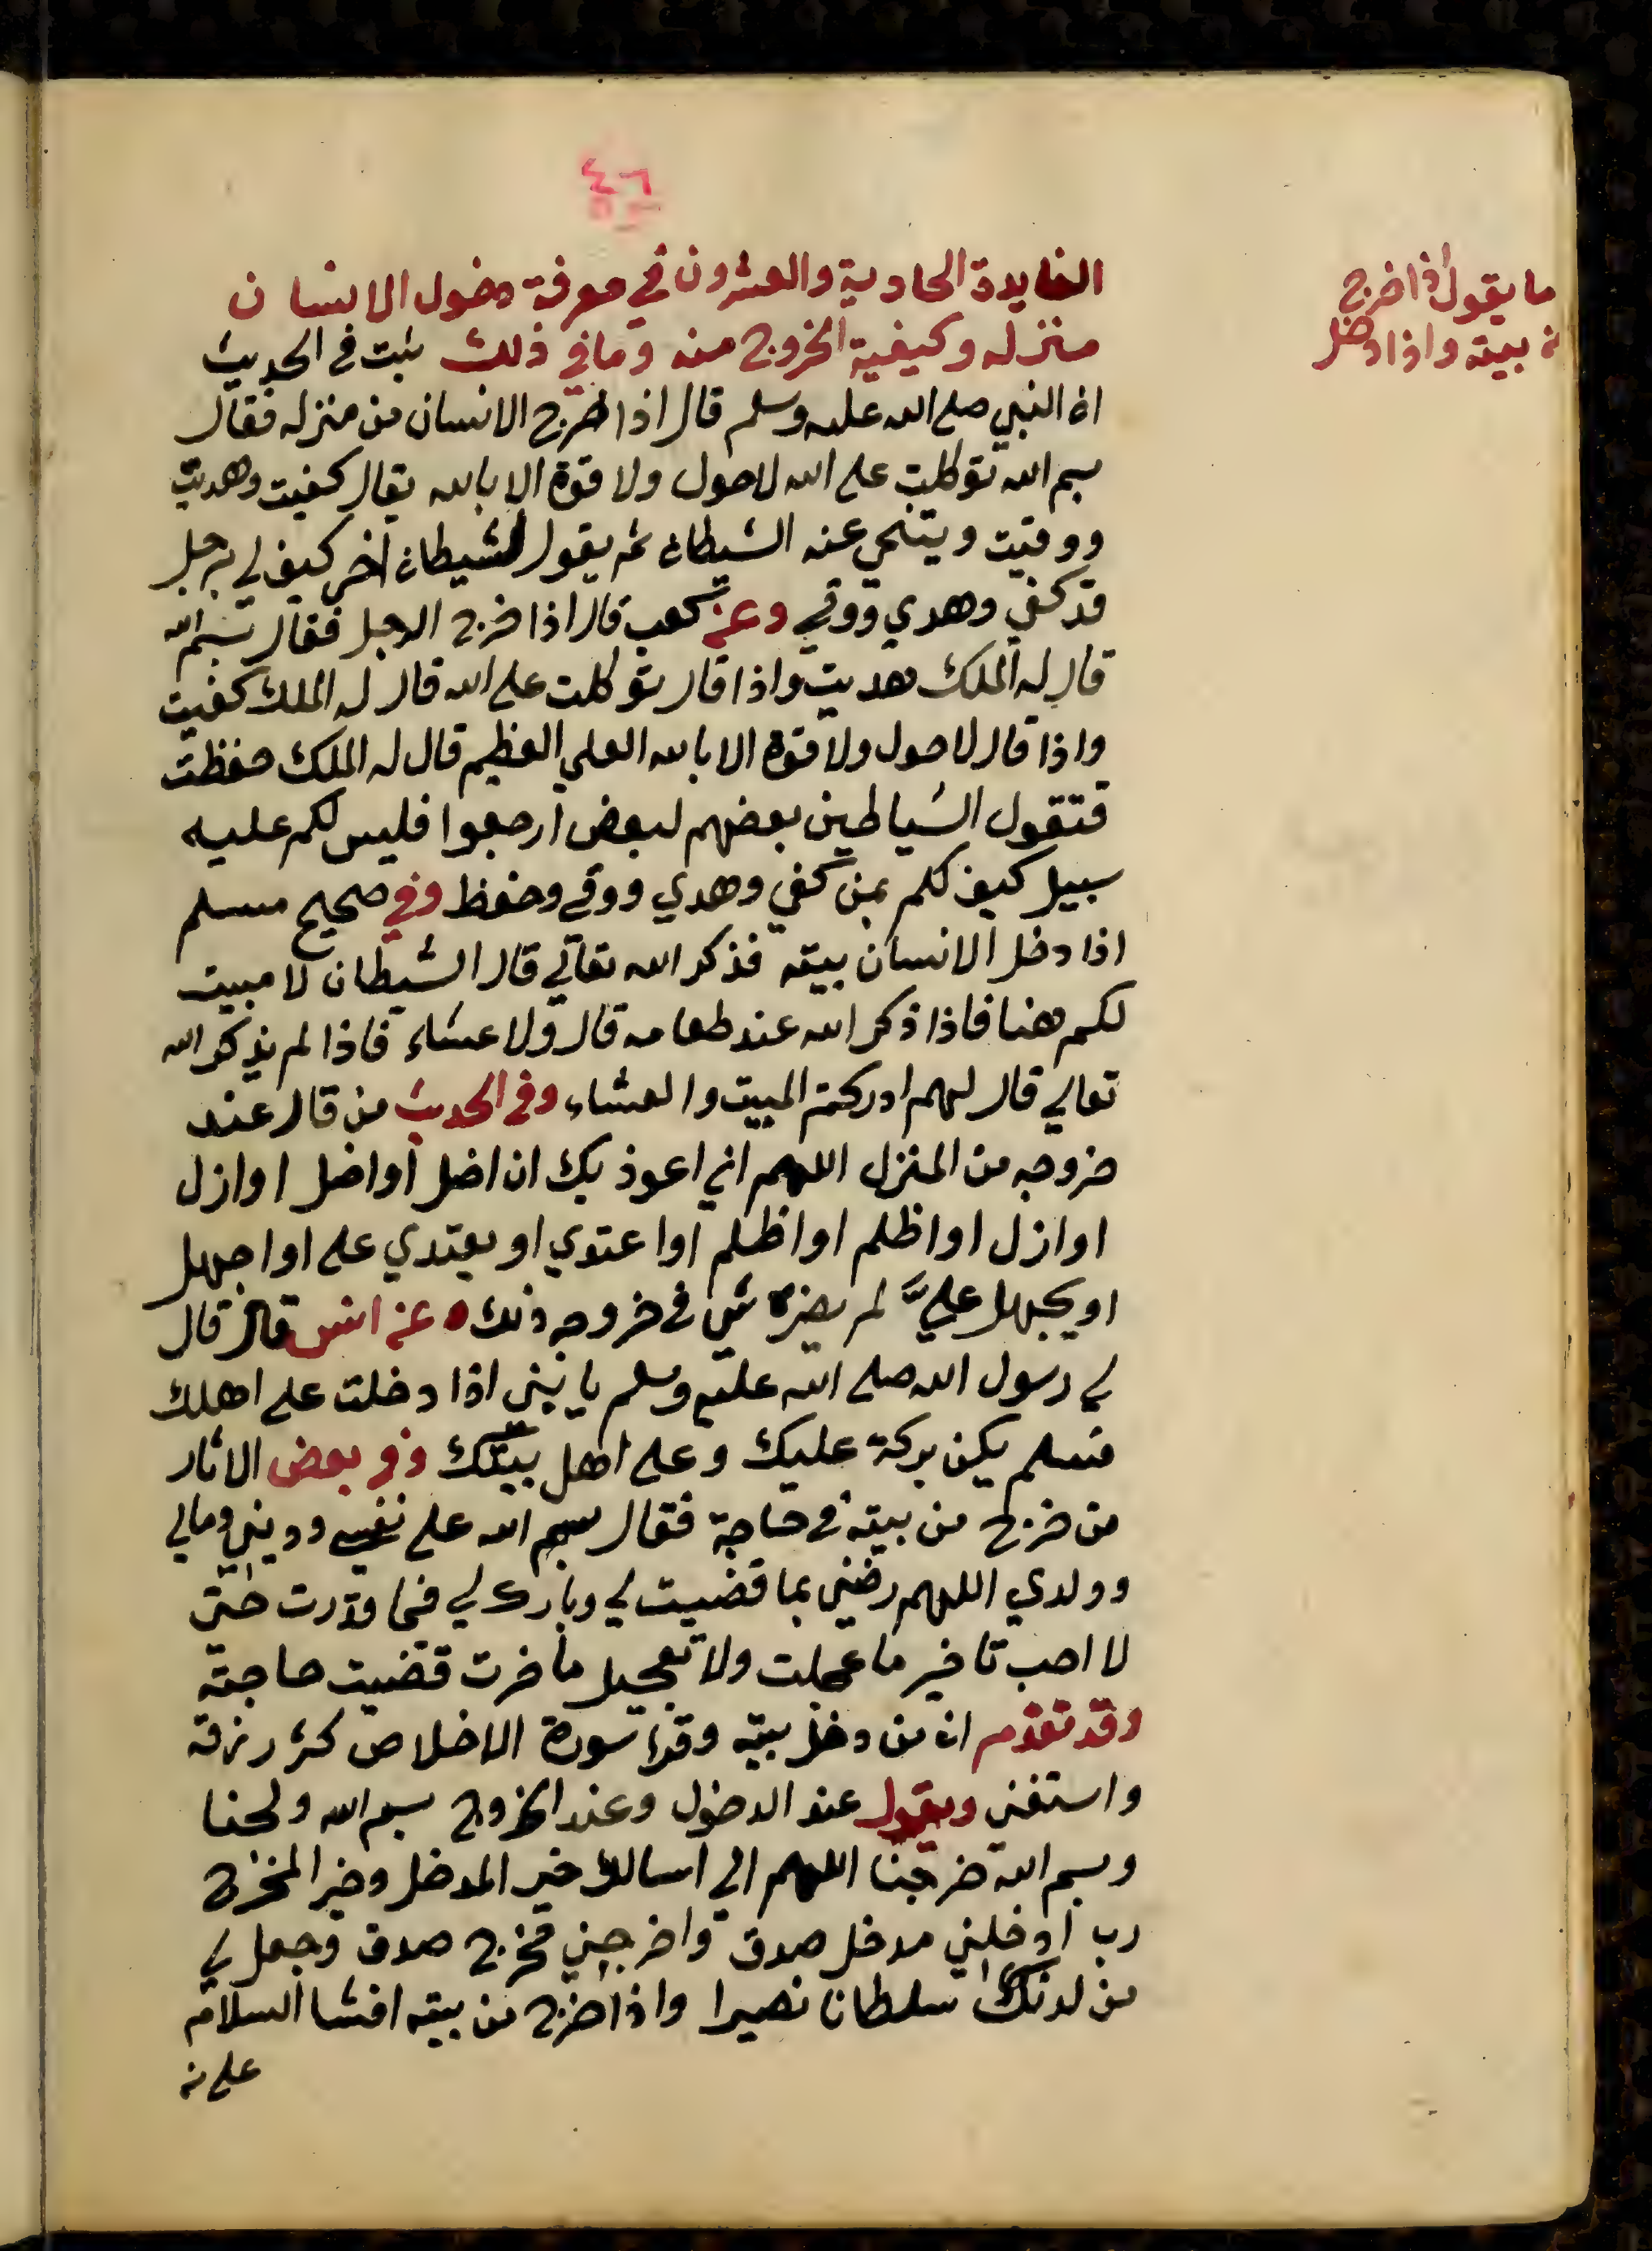 ٤٦
ما يقول اذا خرج
من بيته واذا دخل
الفايدة الحادية والعشرون في معرفة دخول الانسان
منزله وكيفية الخروج منه وما في ذلك ثبت في الحديث
ان النبي صلى الله عليه وسلم قال اذا خرج الانسان من منزله فقال
بسم الله توكلت على الله لاحول ولا قوة الا بالله يقال كفيت وهديت
ووقيت ويتنحى عنه الشيطان ثم يقول لشيطان آخر كيف لي برجل
قد كفي وهدي ووقي وعن كعب قال اذا خرج الرجل فقال بسم الله
قال له الملك هديت واذا قال توكلت على الله قال له الملك كفيت
واذا قال لاحول ولا قوة الا بالله العلي العظيم قال له الملك حفظت
فتقول الشياطين بعضهم لبعض ارجعوا فليس لكم عليه
سبيل كيف لكم بمن كفي وهدي ووقي وحفظ وفي صحيح مسلم
اذا دخل الانسان بيته فذكر الله تعالي قال الشيطان لا مبيت
لكم هنا فاذا ذكر الله عند طعامه قال ولا عشاء فاذا لم يذكر الله
تعالي قال لهم ادركتم المبيت والعشاء وفي الحديث من قال عند
خروجه من المنزل اللهم اني اعوذ بك ان اضل أو اضل او ازل
او ازل او اظلم او اظلم او اعتدي او يعتدي علي او اجهل
او يجهل عليَّ لم يضره شي في خروجه ذلك عن انس قال قال
لي رسول الله صلى الله عليه وسلم يا بني اذا دخلت على اهلك
فسلم يكن بركة عليك وعلى اهل بيتك وفي بعض الاثار
من خرج من بيته في حاجة فقال بسم الله على نفسي وديني ومالي
وولدي اللهم رضني بما قضيت لي وبارك لي فيما قدرت حتى
لا احب تاخير ما عجلت ولا تعجيل ما اخرت قضيت حاجته
وقد تقدم ان من دخل بيته وقرا سورة الاخلاص كثر رزقه
واستغنى ويقول عند الدخول وعند الخروج بسم الله ولجنا
وبسم الله خرجنا اللهم اني اسالك خير المدخل وخير المخرج
رب أدخلني مدخل صدق واخرجني مخرج صدق وجعل لي
من لدنك سلطانا نصيرا واذا خرج من بيته افشا السلام
على من